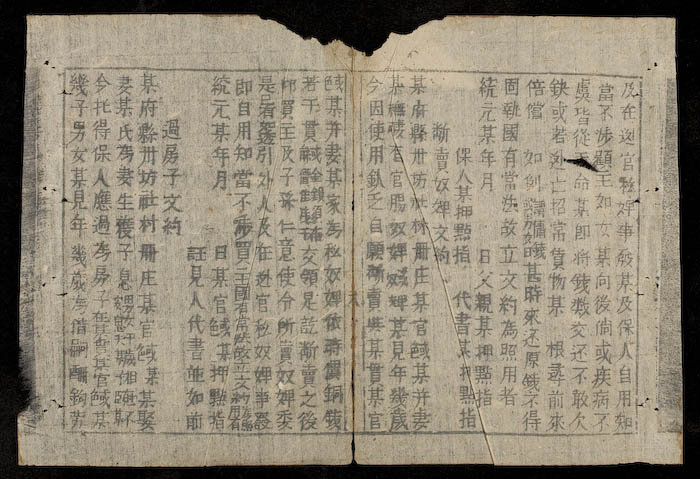 及在逃官私婢事發某及保人自用知
當不涉題主如女某向後倘或疾病不
虞皆從天命某即將錢數交还不敢欠
缺或若逃亡招常貨物某一根尋前來
倍償 如 備錢甚時來还原錢不得
固執國有常法故立文約為照用者
統元某年月 日父親某押點指
保人某押點指 代書某押點指
断賣奴婢文約
某府縣州坊社村冊庄某官職某并妻
某 官賜奴婢 某見年幾歲
今因使用欽乏自願断賣與某貫某官
職某并妻某家為私奴婢依時價銅錢
若干貫 文領足訖断賣之後
仰買主及子孫仁意使令所賣奴婢委
是 引外人及在逃官私奴婢事發
即自用知當不涉買主國有常法故立文約為照用者
統元某年月 日某官職某押點指
証見人代書並如前
過房子文約
某府縣州坊社村冊庄某官職某某娶
妻某氏為妻生獲子息
今托得保人應過為房子在某處某官職某
幾子男女某見年幾歲為借嗣